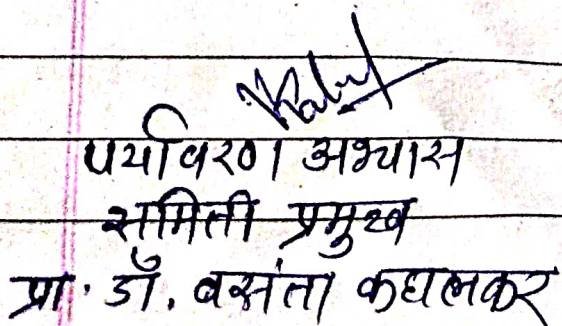 पर्यावरण अभ्यास
समिती प्रमुख
प्रा. डॉ. वसंता कघलकर